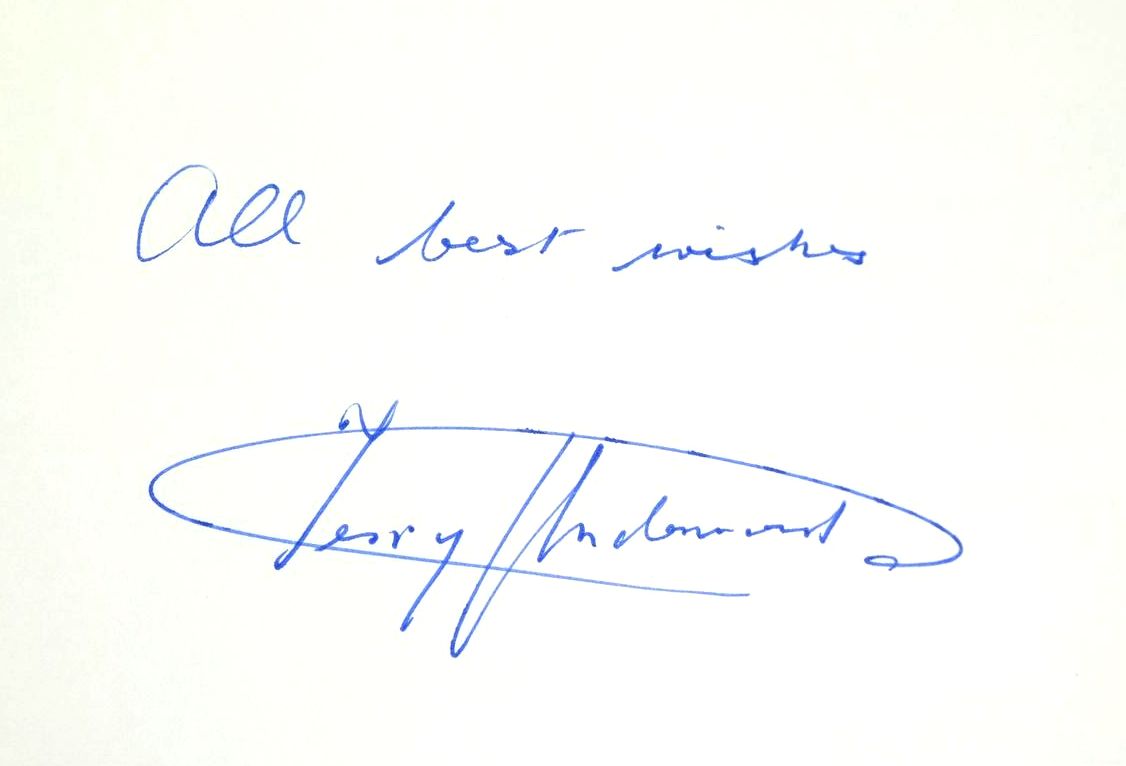 All best wishes
Terry Underwood